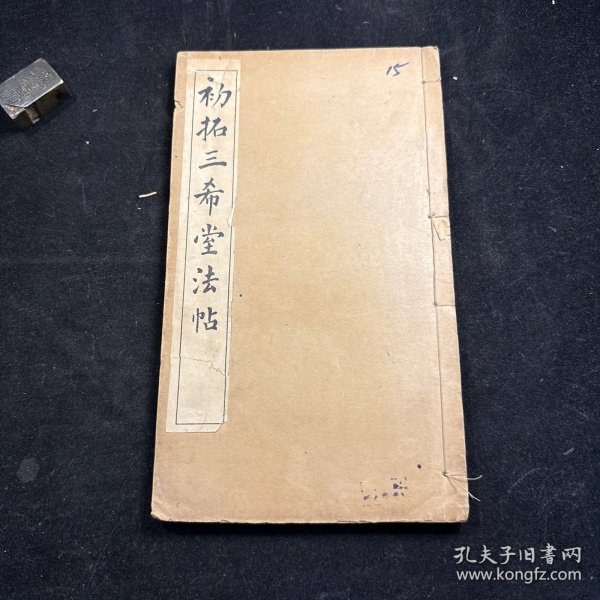 初拓三希堂法帖
15
孔夫子旧书网
www.kongfz.com